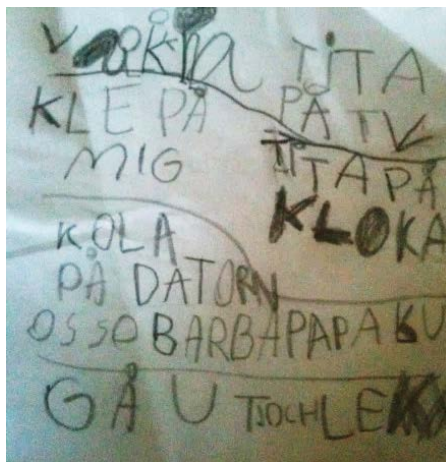 KLE PÅ
MIG
TITA
PÅ TV
TITA PÅ
KLOKA
KOLA
PÅ DATORN
OSSO BARBAPAPA KU
GÅ U